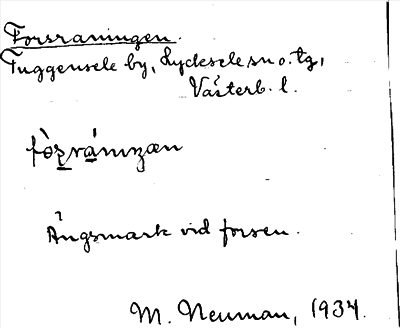 Forsraningen.
Tuggensele by, Lycksele sn o. tg,
Västerb. l.
fòṟrá̱nıŋæn
Ängsmark vid forsen.
M. Neuman, 1934.